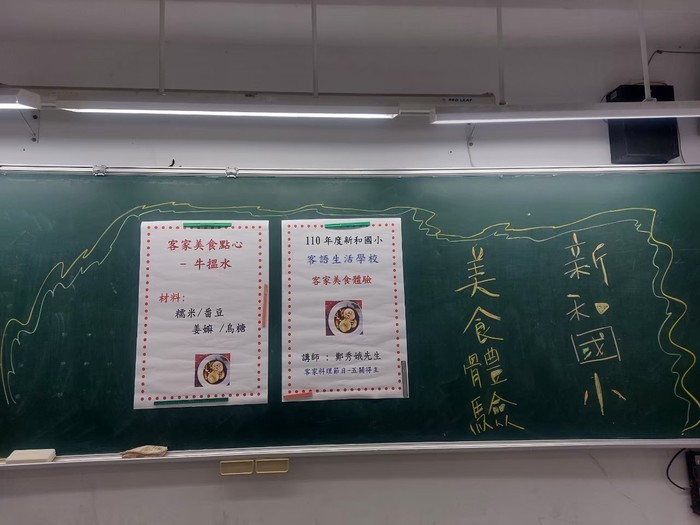 客家美食點心
- 牛搵水
材料:
糯米/番豆
姜嫲/烏糖
110 年度新和國小
客語生活學校
客家美食體驗
講師 : 鄭秀娥先生
客家料理節目-五關得主
新和國小
美食體驗